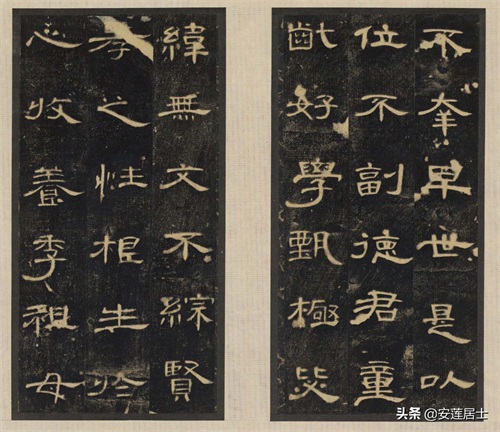 不幸早世是以
位不副德君童
齔好學甄極毖
緯無文不綜賢
孝之性根生於
心收養季祖母
头条 @安莲居士